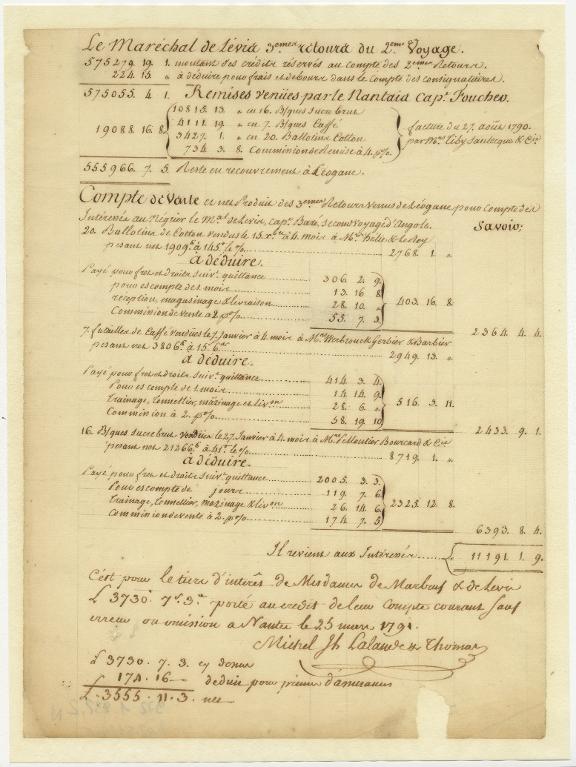 Le Maréchal de Lévis 3emes retours du 2eme Voyage.
575279. 19. 1. montant des crédits réservés au compte des 2emes Retours.
224. 15. " à déduire pour frais et débours dans le compte des consignataires.
575055. 4. 1. Remises venües par le Nantais Capn. Foucher.
10815. 13. " en 16. B/ques sucre brut
4111. 19. " en 7. B/ques Caffé
19088. 16. 8. facture du 27. août 1790.
3427. 1. " en 20. Ballotins Cotton par Mrs.
734. 3. 8. Commission de Remise à 4. p%
555966. 7. 5. Reste en recouvrement à Léogane.
Compte de Vente et net Produit des 3emes Retours Venus de Léogane pour Compte des
Intéressés au Négrier le Mal. de Levis, capn. Baré, second Voyage d'Angole. Savoir;
20. Ballotins de Cotton Vendus le 15. Xbre à 4. mois à Mrs. Belle & LeRoy
pesant net 1909 lb à 145 lt % 2768. 1. "
à déduire.
Payé pour fret et droits suivt. quittance 306. 2. 9.
pour escompte des mois 13. 16. 8.
403. 16. 8.
réception, magasinage & livraison 28. 10. "
Commission de Vente à 2. p% 55. 7. 3.
2364. 4. 4.
7. futailles de Caffé Vendües le 7. Janvier à 4. mois à Mrs. Werbrouck Gerbier & Barbier
pesant net 3806 lb à 15 s. 6 d. 2949. 13. "
à déduire.
Payé pour fret et droits suivt. quittance 414. 3. 4.
Pour escompte de 1 mois 14. 14. 9.
516. 3. 11.
Trainage, tonnellier, mazinage et livon. 28. 6. "
Commission à 2. p% 58. 19. 10.
2433. 9. 1.
16. B/ques sucre brut Vendües le 27. Janvier à 4. mois à Mrs. Pelloutier Bourcard & Cie.
pesant net 21266 lb à 41 lt % 8719. 1. "
à déduire.
Payé pour fret et droits suivt. quittance 2005. 3. 3.
Pour escompte de jours 119. 7. 6.
2325. 12. 8.
Trainage, tonnellier, mazinage & livon. 26. 14. 6.
Commission de vente à 2. p% 174. 7. 5.
6393. 8. 4.
Il revient aux Intéressés 11191. 1. 9.
C'est pour le tiers d'intérêt de Mesdames de Marbeuf & de Levis
£ 3730. 7s. 3d. porté au crédit de leur Compte courant sauf
erreur ou omission à Nantes le 25 mars 1791.
Michel Jh Lalande & Thomas
£ 3730. 7. 3. cy dessus
174. 16 déduit pour prime d'assurances
£. 3555. 11. 3. net